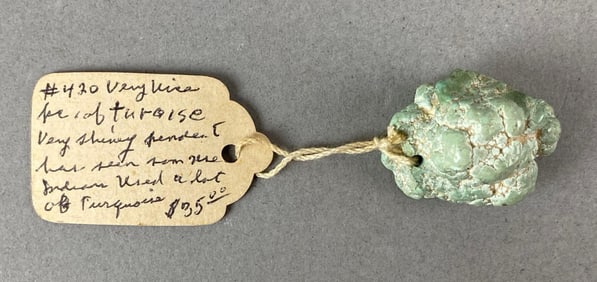 #420 Very Nice
pc. of turoise
Very shiny pendent
has seen som use
Indians Used a lot
of Turquoise $35.00